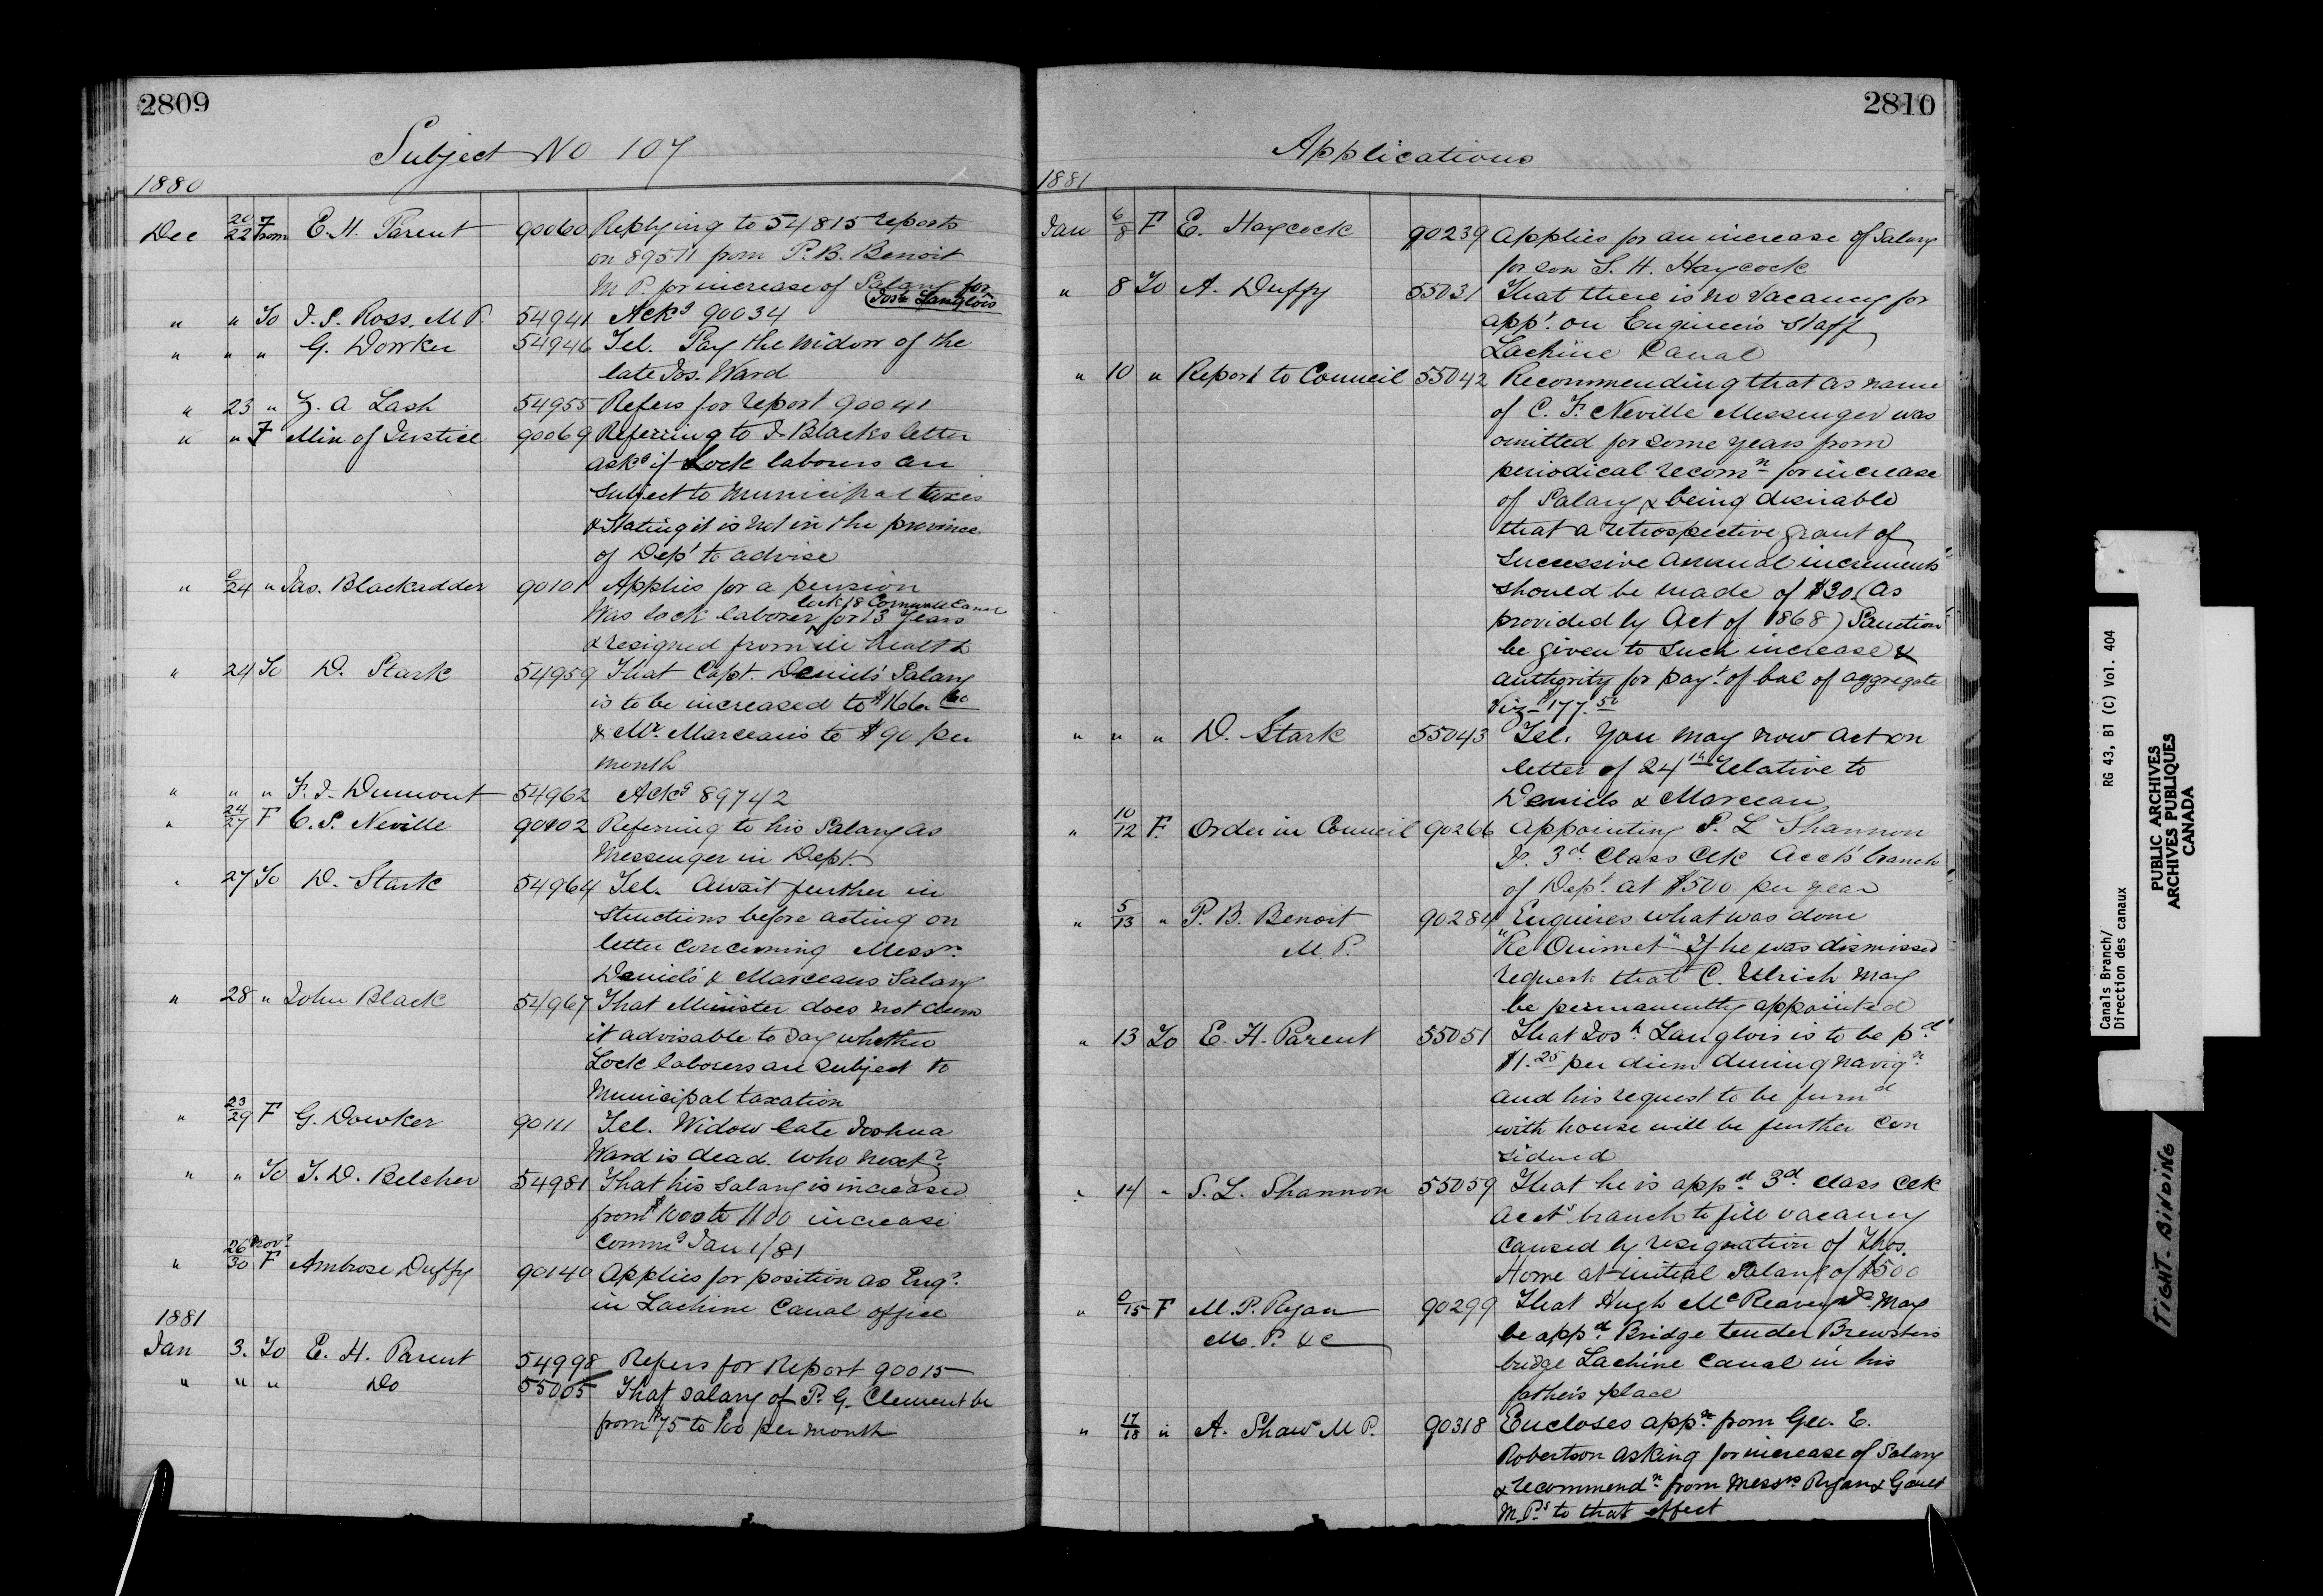 2809
Subject No 107
1880
Dec 20/22 F from E. H. Parent 90060 Replying to 54815 reports
on 89511 from P. B. Benoit
M P. for increase of Salary for
Josh Langlois
" " To J. S. Ross, M P. 54941 Ackg 90034
" " " G. Dowker 54946 Tel. Pay the widow of the
late Jos. Ward
" 23 " Z. A Lash 54955 Refers for report 90041
" " F Min of Justice 90069 Referring to J. Blacks letter
askg if Lock laborers are
subject to Municipal taxes
& stating it is not in the province
of Dept to advise
" 24 " Jas. Blackadder 90101 Applies for a pension
lock 18 Cornwall Canal
Was lock laborer for 13 years
& resigned from ill health
" 24 To D. Stark 54959 That Capt. Daniels' Salary
is to be increased to
& Mr. Marceau's to $90 per
month
" " " F. J. Dumont 54962 Ackg 89742
" 24/27 F C. S. Neville 90102 Referring to his Salary as
Messenger in Dept.
" 27 To D. Stark 54964 Tel. Await further in
structions before acting on
letter concerning Messrs.
Daniels & Marceaus Salary
" 28 " John Black 54967 That Minister does not deem
it advisable to say whether
Lock laborers are subject to
Municipal taxation
" 23/29 F G. Dowker 90111 Tel. Widow late Joshua
Ward is dead. Who next?
" " To T. D. Belcher 54981 That his salary is increased
from $1000 to 1100 increase
commg Jan 1/81
" 26 Novr/30 F Ambrose Duffy 90140 Applies for position as Engr.
in Lachine Canal office
1881
Jan 3. To E. H. Parent 54998 Refers for Report 90015
" " " Do 55005 That salary of P. G. Clement be
from $75 to 100 per month
2810
Applications
1881
Jan 6/8 F E. Haycock 90239 Applies for an increase of Salary
for son S. H. Haycock
" 8 To A. Duffy 55031 That there is no vacancy for
appt. on Engineers Staff
Lachine Canal
" 10 " Report to Council 55042 Recommending that as name
of C. F. Neville Messenger was
omitted for some years from
periodical recomn for increase
of Salary & being desirable
that a retrospective grant of
successive annual increments
should be made of $30. (as
provided by Act of 1868) Sanction
be given to such increase &
authority for payt. of bal of aggregate
viz- 177.50
" " " D. Stark 55043 Tel. You may now act on
letter of 24th relative to
Daniels & Marceau
" 10/12 F. Order in Council 90266 Appointing S. L Shannon
3d. Class Clk Acct's branch
of Dept. at $500 per year
" 5/13 " P. B. Benoit 90284 Enquires what was done
M. P. "Re Ouimet" If he was dismissed
request that C. Ulrich may
be permanently appointed
" 13 To E. H. Parent 55051 That Josh Langlois is to be pd
$1.25 per diem during navign
and his request to be furnd
with house will be further con
sidered
" 14 " S. L. Shannon 55059 That he is appd 3d. class Clk
Accts branch to fill vacancy
caused by resignation of Thos.
Horne at initial Salary of $500
" 15 F M. P. Ryan 90299 That Hugh McReavy may
M. P. &c be appd Bridge tender Brewsters
bridge Lachine Canal in his
father's place
" 17/18 " A. Shaw M P. 90318 Encloses appn from Geo. E.
Robertson asking for increase of Salary
& recommendn from Messrs Ryan & Gault
M.Ps to that effect
Canals Branch/ RG 43, B1 (C) Vol. 404
Direction des canaux
PUBLIC ARCHIVES
ARCHIVES PUBLIQUES
CANADA
TIGHT BINDING